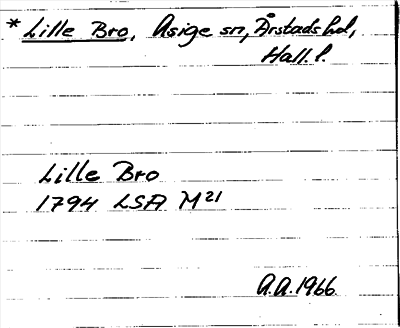 * Lille Bro, Asige sn, Årstads hd,
Hall. l.
Lille Bro
1794 LSA M21
A.A. 1966